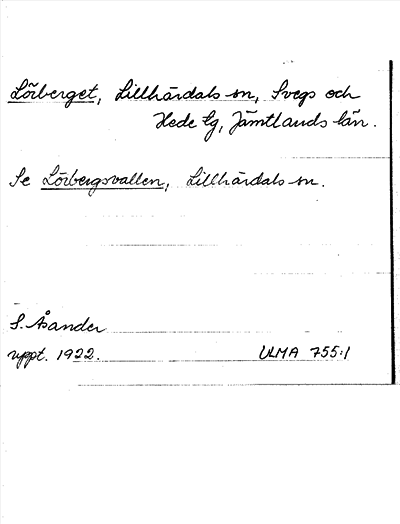 Lörberget, Lillhärdals sn, Svegs och
Hede tg, Jämtlands län.
Se Lörbergsvallen, Lillhärdals sn.
S. Åsander
uppt. 1922.
ULMA 755:1